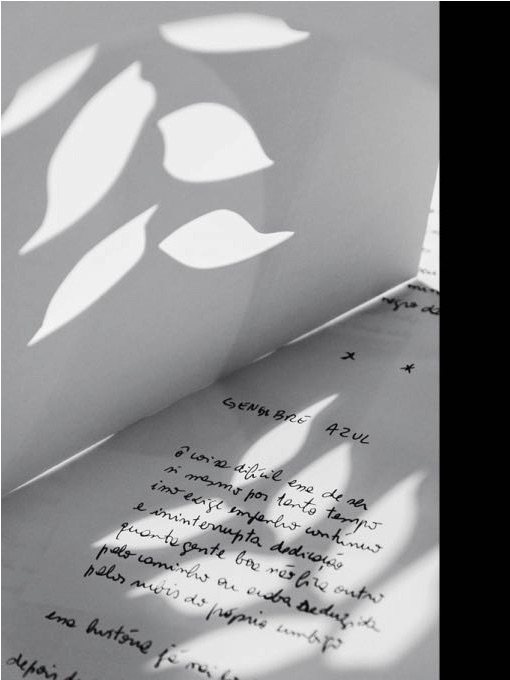 negro de
* *
GENGIBRE AZUL
ô coisa difícil essa de ser
si mesmo por tanto tempo
isso exige empenho contínuo
e ininterrupta dedicação
quanta gente boa não fica outro
pelo caminho ou acaba seduzida
pelos rubis do próprio umbigo
essa história já vai
depois